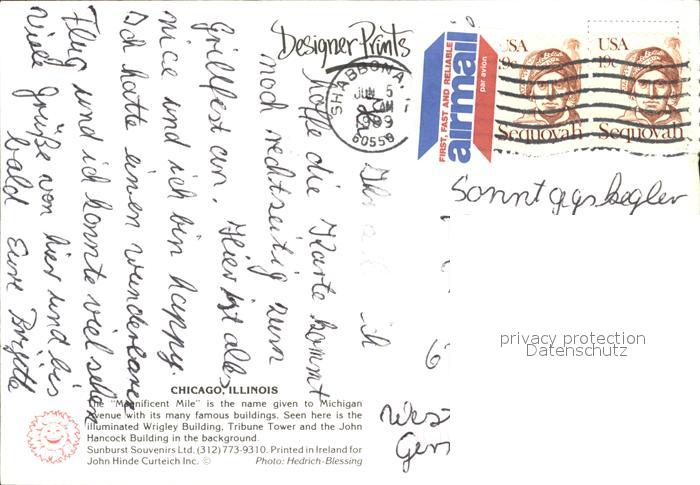 Designer Prints
SHABBONA
JUN 5
AM
1989
60550
FIRST, FAST AND RELIABLE
airmail
par avion
USA
19c
Sequoyah
USA
19c
Sequoyah
Ihr
ich
hoffe die Karte kommt
noch rechtzeitig zum
Grillfest an. Hier ist alles
nice und ich bin happy.
Ich hatte einen wunderbaren
Flug und ich konnte viel sehen
Viele Grüße von hier und bis
bald Eure Brigitte
Sonntagskegler
6
Wes
Ger
privacy protection
Datenschutz
CHICAGO, ILLINOIS
The "Magnificent Mile" is the name given to Michigan
Avenue with its many famous buildings. Seen here is the
illuminated Wrigley Building, Tribune Tower and the John
Hancock Building in the background.
Sunburst Souvenirs Ltd. (312) 773-9310. Printed in Ireland for
John Hinde Curteich Inc. © Photo: Hedrich-Blessing